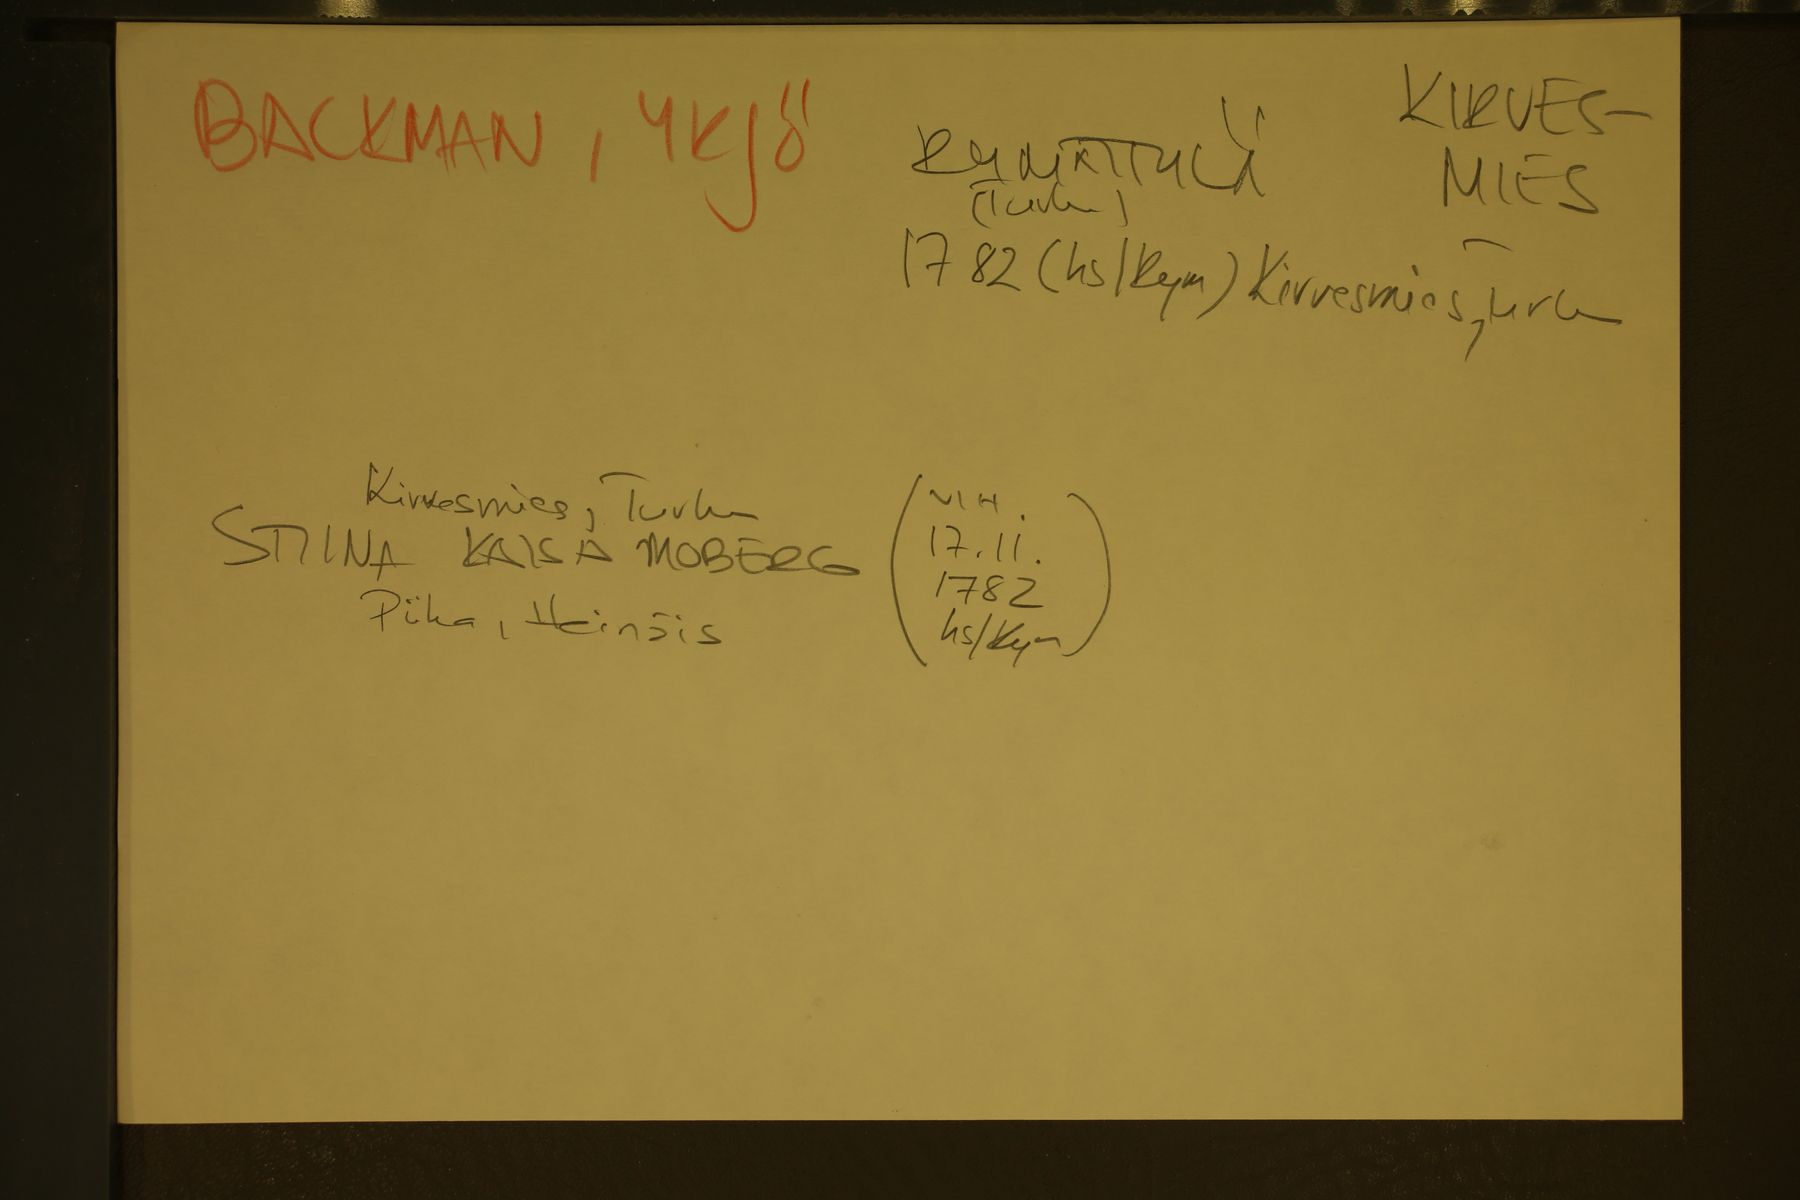 BACKMAN, YRJÖ
KIRVES-
MIES
RYMÄTTYLÄ
(Turku)
1782 (hs/Rym) Kirvesmies, Turku
Kirvesmies, Turku
STIINA KAISA MOBERG
Piika, Heinäis
(VIH.
17.11.
1782
hs/Rym)